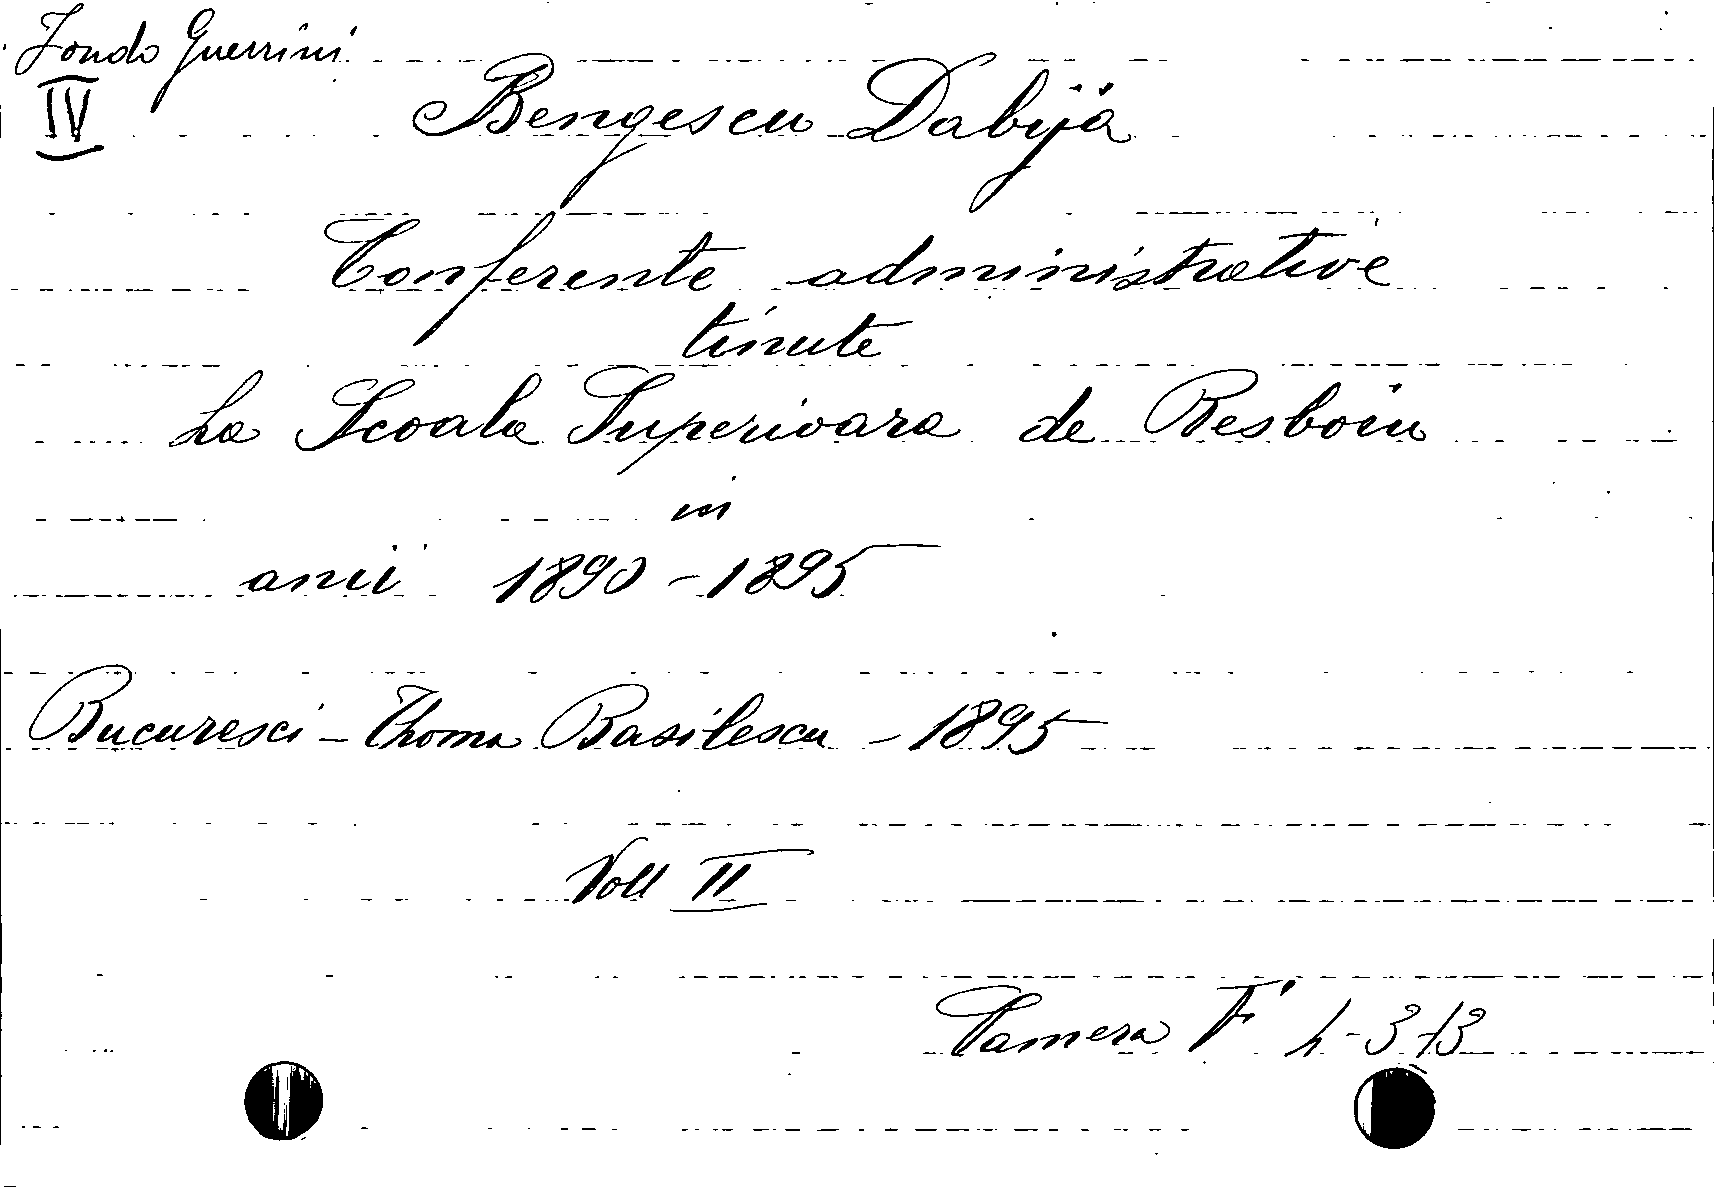 Fondo Guerrini
IV
Bengescu Dabija
Conferente administrative
tinute
La Scoala Superioara de Resboiu
in
anii 1890 - 1895
Bucuresci - Thoma Basilescu - 1895
Voll II
Camera F' h-3-13